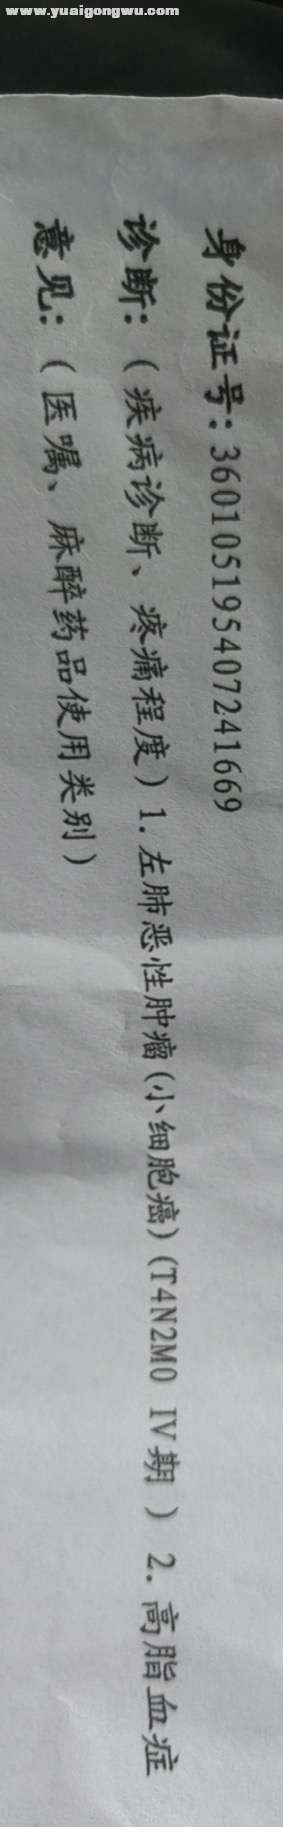 www.yuaigongwu.com
身份证号:360105195407241669
诊断:(疾病诊断、疼痛程度)1.左肺恶性肿瘤(小细胞癌)(T4N2M0 IV期 ) 2.高脂血症
意见:(医嘱、麻醉药品使用类别)